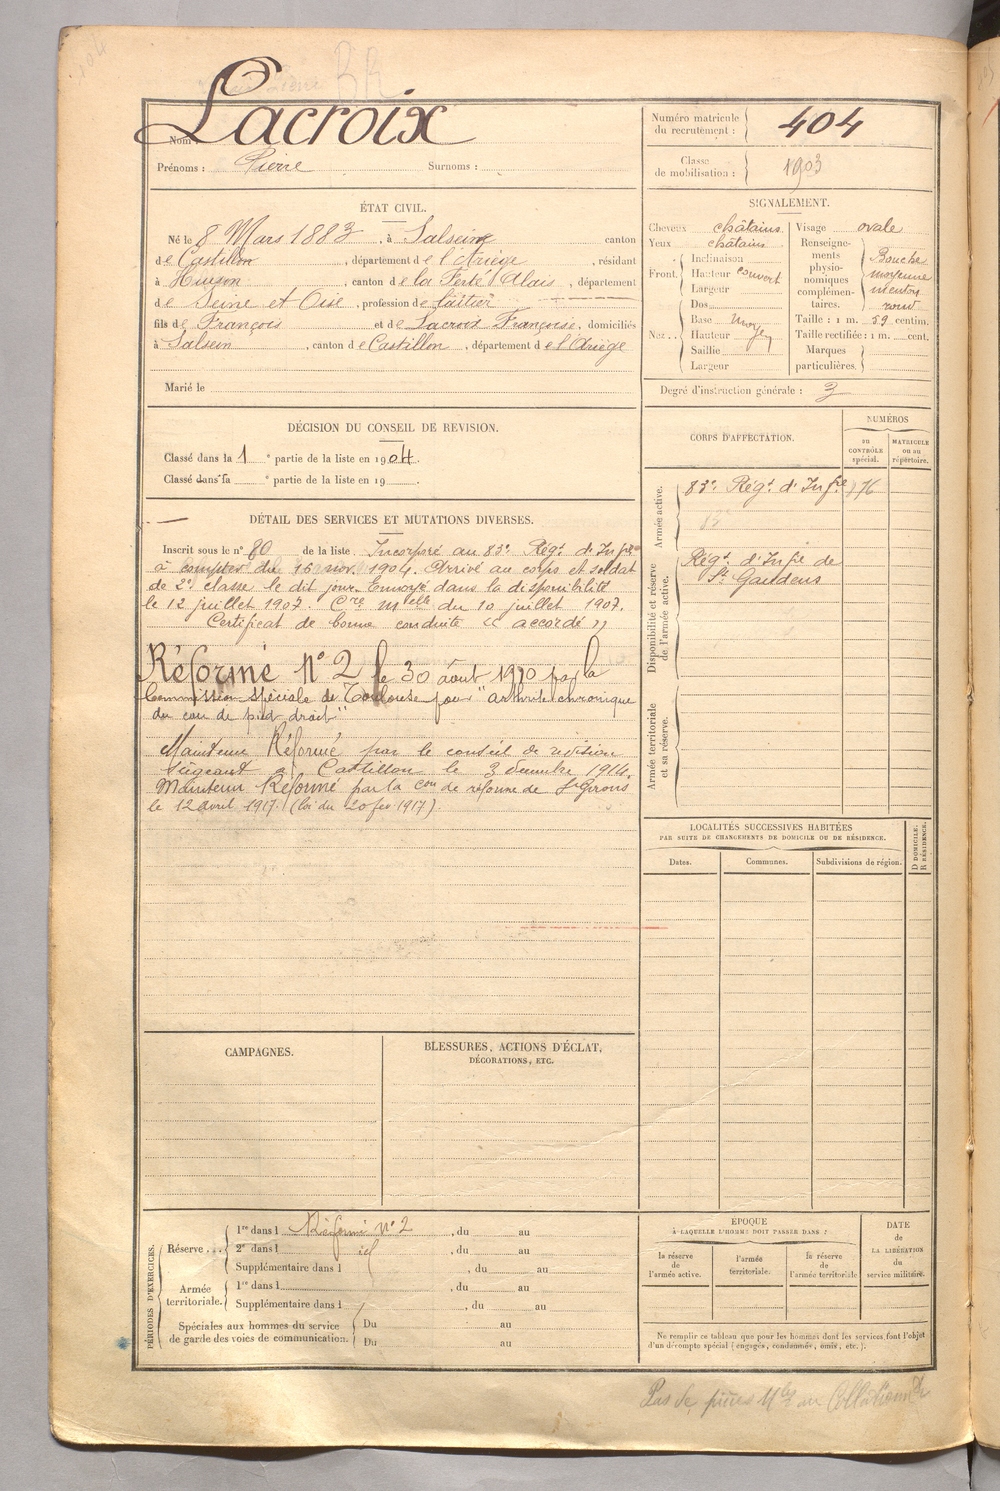 Lacroix
Nom :
Prénoms : Pierre Surnoms :
Numéro matricule du recrutement : 404
Classe de mobilisation : 1903
ÉTAT CIVIL.
Né le 8 Mars 1883, à Salsein canton
de Castillon, département de l'Ariège, résidant
à, canton de la Ferté Alais, département
de Seine et Oise, profession de laitier
fils de François et de Lacroix Françoise, domiciliés
à Salsein, canton de Castillon, département de l'Ariège
Marié le
SIGNALEMENT.
Cheveux châtains
Yeux châtains
Front. Inclinaison
Hauteur couvert
Largeur
Nez. Dos
Base moyen
Hauteur
Saillie
Largeur
Visage ovale
Renseignements physionomiques complémentaires. Bouche
moyenne
menton
rond
Taille : 1 m. 59 centim.
Taille rectifiée : 1 m. cent.
Marques particulières.
Degré d'instruction générale : 3
DÉCISION DU CONSEIL DE REVISION.
Classé dans la 1e partie de la liste en 1904.
Classé dans la e partie de la liste en 19
CORPS D'AFFECTATION.
NUMÉROS
au CONTRÔLE spécial.
MATRICULE ou au répertoire.
Armée active.
83e Régt d'Infie 176
Disponibilité et réserve de l'armée active.
Régt d'Infie de
St Gaudens
Armée territoriale et sa réserve.
DÉTAIL DES SERVICES ET MUTATIONS DIVERSES.
Inscrit sous le n° 80 de la liste. Incorporé au 83e Régt d'Infie
à compter du 16 nov. 1904. Arrivé au corps et soldat
de 2e classe le dit jour. Envoyé dans la disponibilité
le 12 juillet 1907. Cre Melle du 10 juillet 1907.
Certificat de bonne conduite « accordé »
Réformé N° 2 le 30 août 1910 par la
Commission spéciale de Toulouse pour "arthrite chronique
du cou de pied droit"
Maintenu Réformé par le conseil de révision
siégeant à Castillon le 3 décembre 1914.
Maintenu Réformé par la Con de réforme de St Girons
le 12 avril 1917 (loi du 20 fev 1917)
LOCALITÉS SUCCESSIVES HABITÉES
PAR SUITE DE CHANGEMENTS DE DOMICILE OU DE RÉSIDENCE.
Dates. Communes. Subdivisions de région. D DOMICILE. R RÉSIDENCE.
CAMPAGNES.
BLESSURES, ACTIONS D'ÉCLAT,
DÉCORATIONS, ETC.
PÉRIODES D'EXERCICES.
Réserve...
1re dans l Réformé N° 2, du au
2e dans l id, du au
Supplémentaire dans l, du au
Armée territoriale.
1re dans l, du au
Supplémentaire dans l, du au
Spéciales aux hommes du service
de garde des voies de communication.
Du au
Du au
EPOQUE
À LAQUELLE L'HOMME DOIT PASSER DANS :
la réserve de l'armée active.
l'armée territoriale.
la réserve de l'armée territoriale
DATE de LA LIBÉRATION du service militaire.
Ne remplir ce tableau que pour les hommes dont les services font l'objet
d'un décompte spécial (engagés, condamnés, omis, etc.).
Pas de pièces